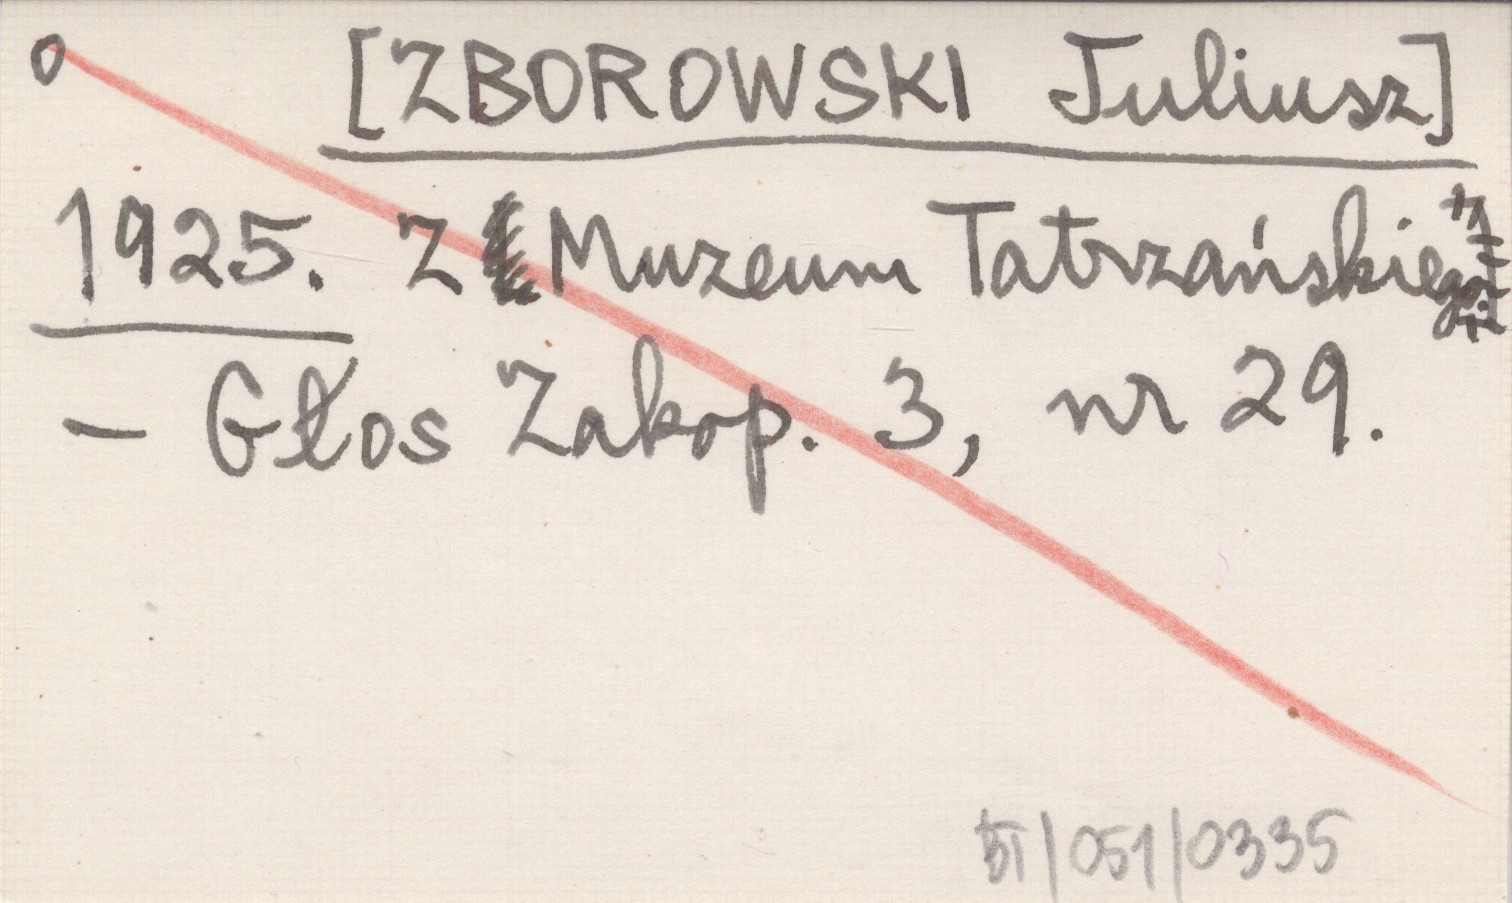 o [ZBOROWSKI Juliusz]
1925. Z Muzeum Tatrzańskiego.
– Głos Zakop. 3, nr 29.
BT/051/0335